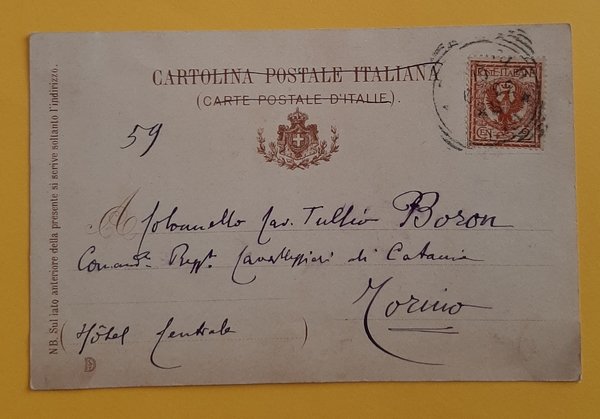 CARTOLINA POSTALE ITALIANA
(CARTE POSTALE D'ITALIE).
59
A Colonnello Cav. Tullio Boron
Comand. Regg. Cavalleggieri di Catania
Torino
(Hôtel Centrale)
NB. Sul lato anteriore della presente si scrive soltanto l'indirizzo.